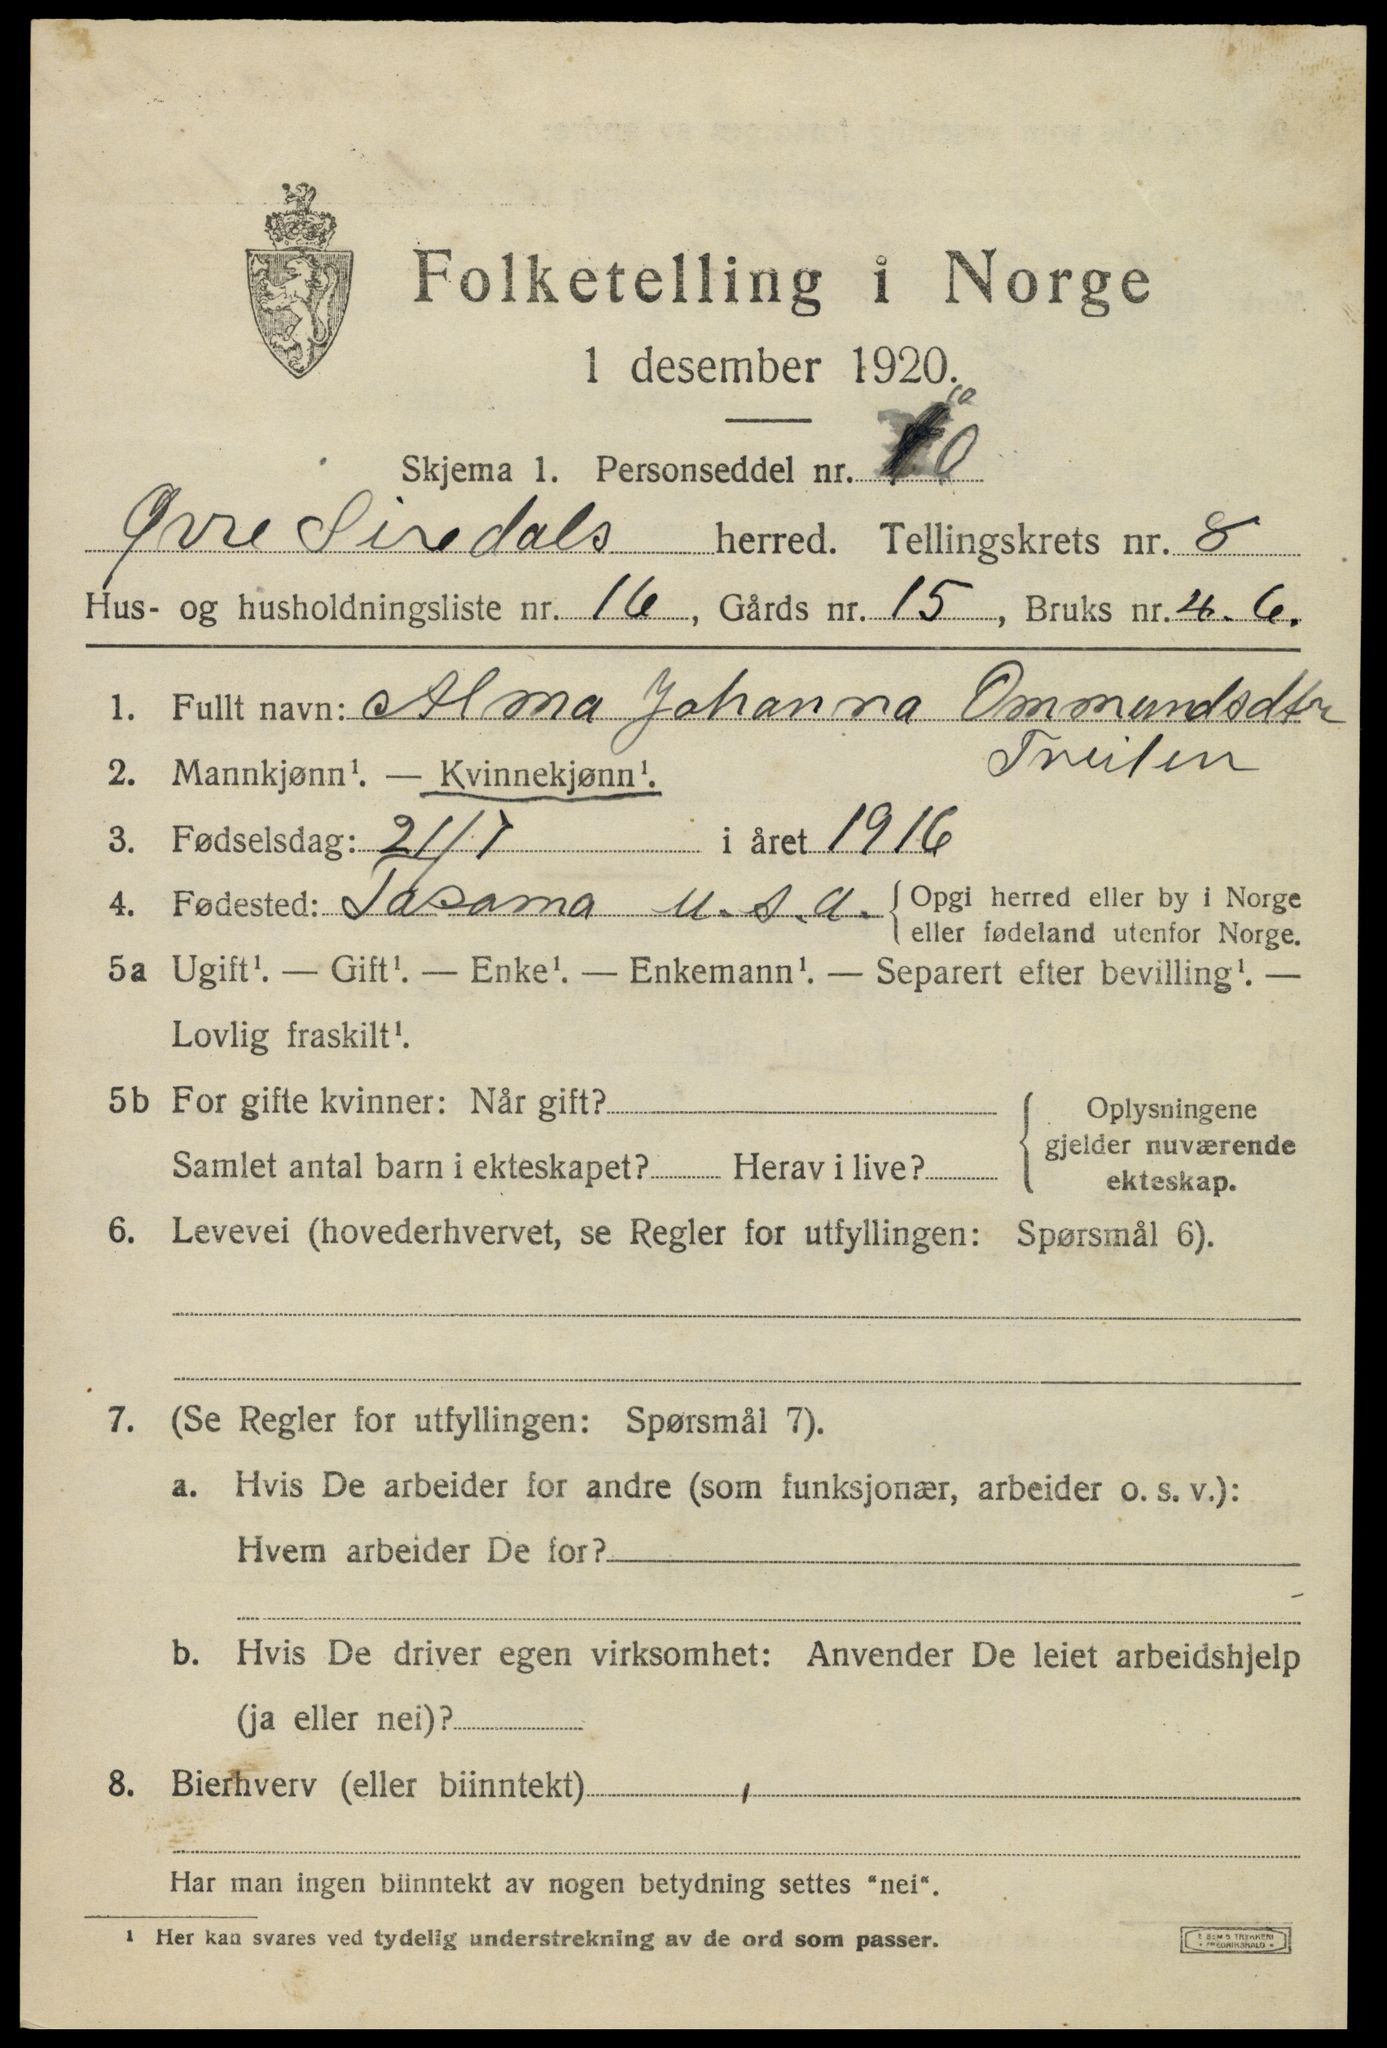 Folketelling i Norge
1 desember 1920.
10
Skjema 1. Personseddel nr. 10
Øvre Siredals herred. Tellingskrets nr. 8
Hus- og husholdningsliste nr. 16, Gårds nr. 15, Bruks nr. 4. 6.
1. Fullt navn: Alma Johanna Ommundsdtr
Treilen
2. Mannkjønn¹. — Kvinnekjønn¹.
3. Fødselsdag: 21/7 i året 1916
4. Fødested: Tasama u.s.a. { Opgi herred eller by i Norge
eller fødeland utenfor Norge.
5a Ugift¹. — Gift¹. — Enke¹. — Enkemann¹. — Separert efter bevilling¹. —
Lovlig fraskilt¹.
5b For gifte kvinner: Når gift? { Oplysningene
gjelder nuværende
Samlet antal barn i ekteskapet? Herav i live? ekteskap.
6. Levevei (hovederhvervet, se Regler for utfyllingen: Spørsmål 6).
7. (Se Regler for utfyllingen: Spørsmål 7).
a. Hvis De arbeider for andre (som funksjonær, arbeider o. s. v.):
Hvem arbeider De for?
b. Hvis De driver egen virksomhet: Anvender De leiet arbeidshjelp
(ja eller nei)?
8. Bierhverv (eller biinntekt)
Har man ingen biinntekt av nogen betydning settes "nei".
¹ Her kan svares ved tydelig understrekning av de ord som passer.
TRYKKERI
FREDRIKSHALD